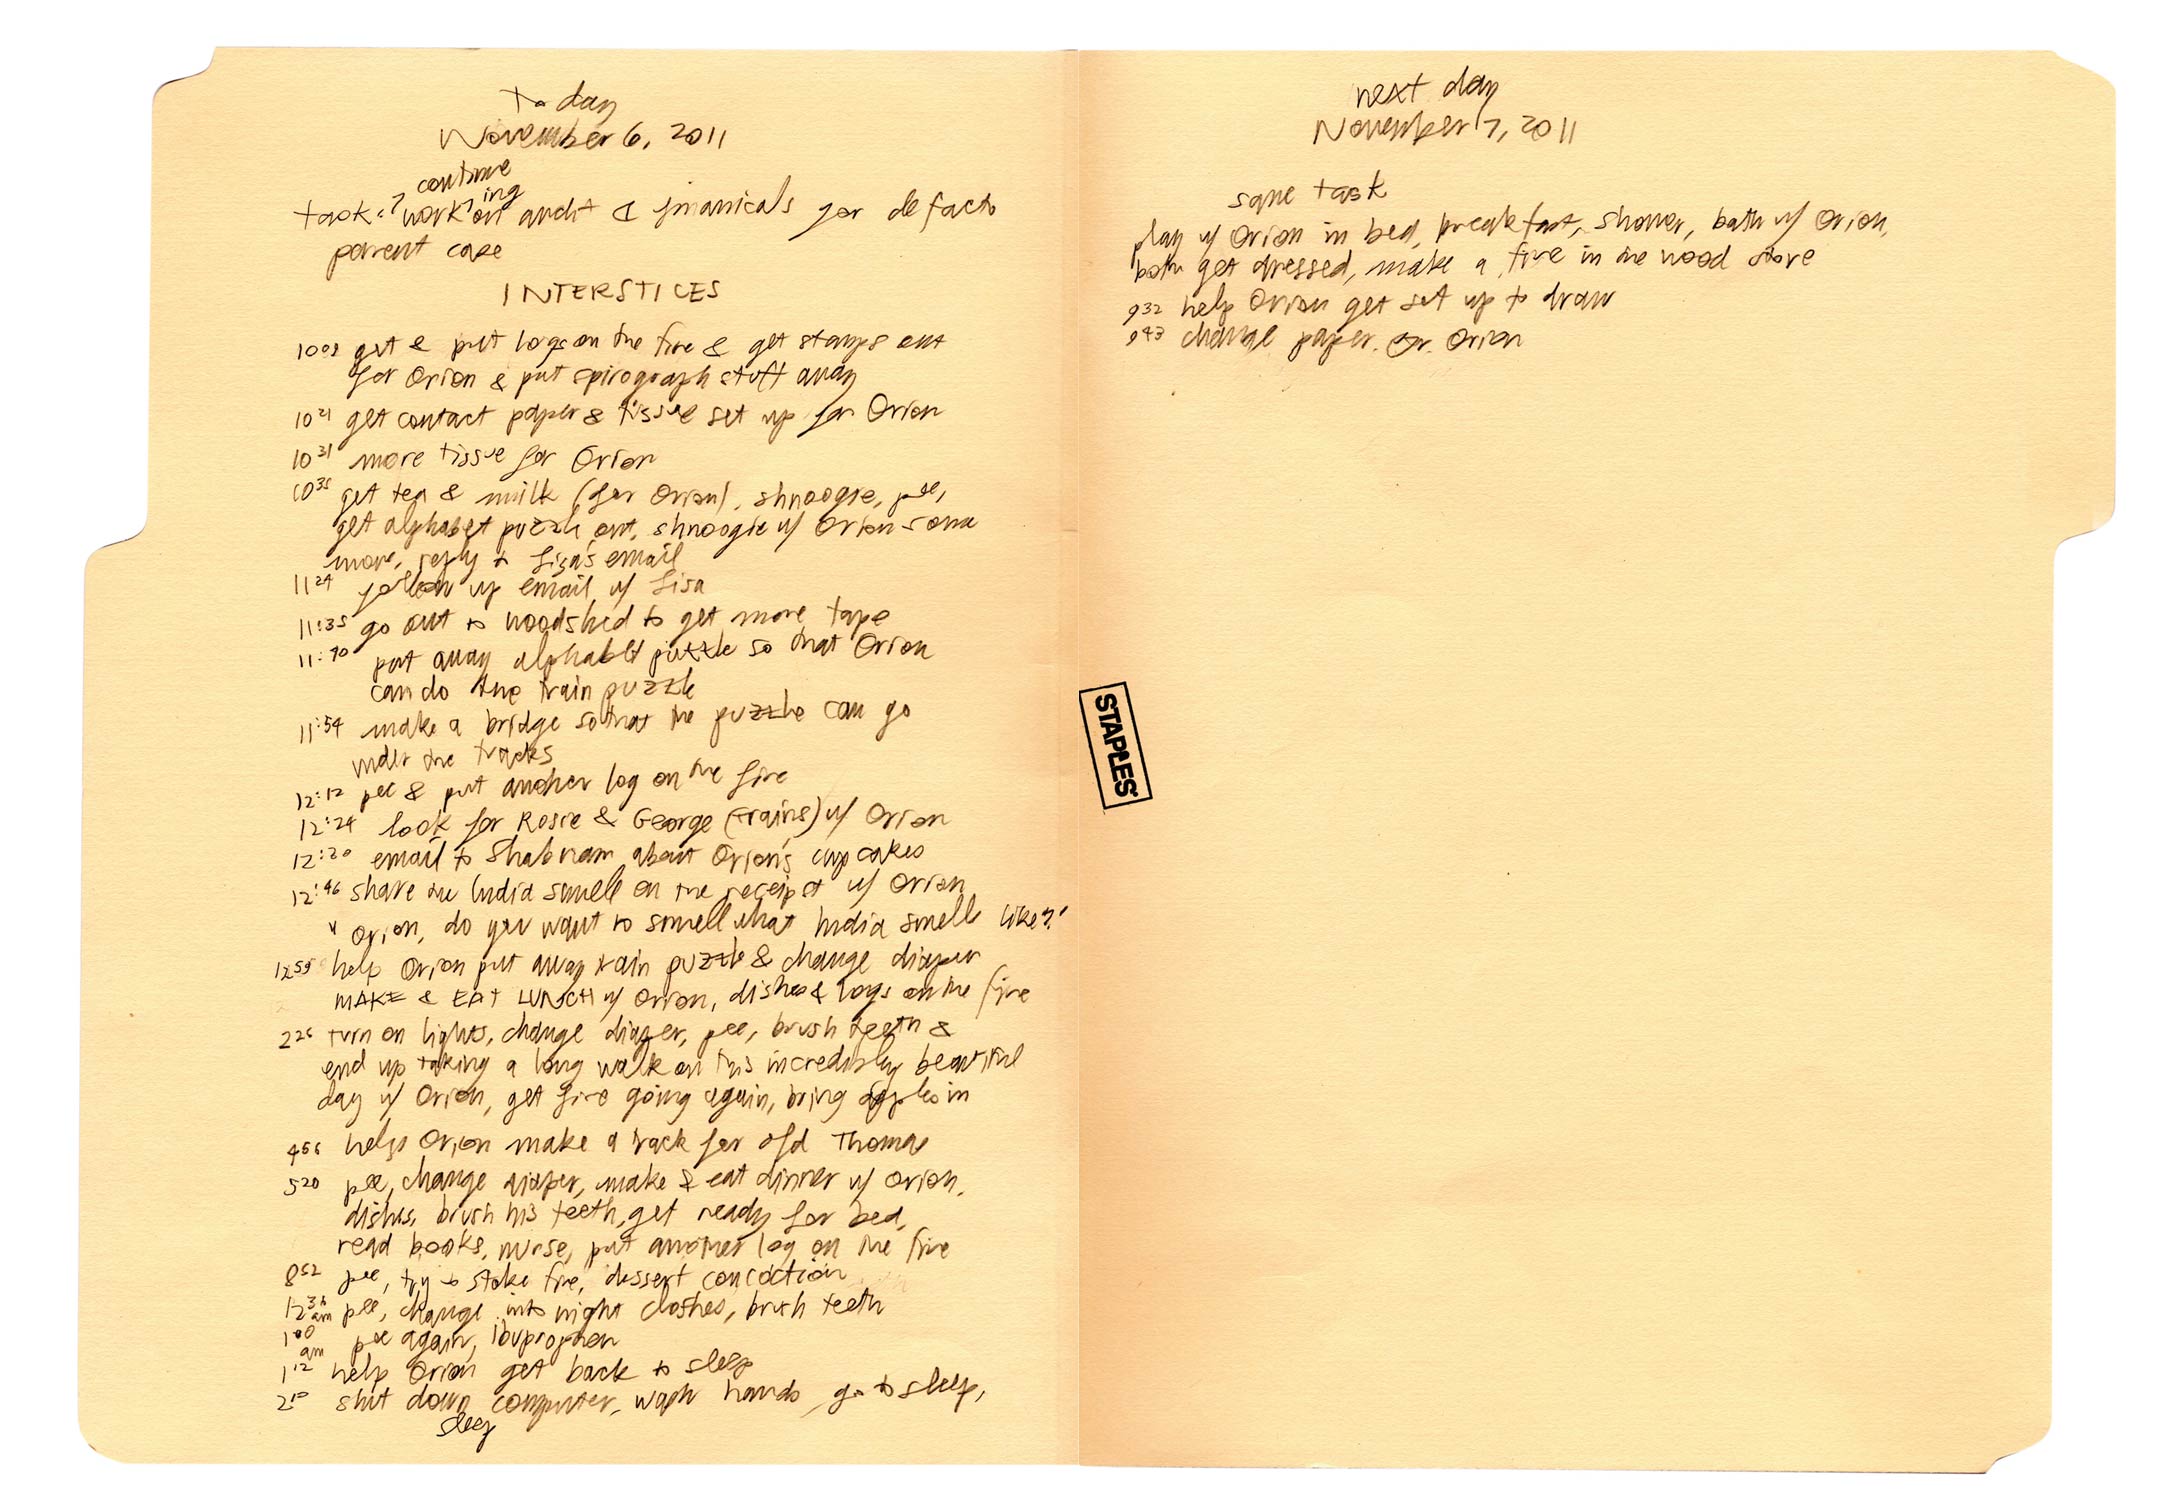 today
November 6, 2011
continue
ing
task: work on audit & financials for de facto
parent case
INTERSTICES
10 09 get & put logs on the fire & get stamps out
for Orion & put spirograph stuff away
10 21 get contact paper & tissue set up for Orion
10 31 more tissue for Orion
10 35 get tea & milk (for Orion), shnoogie, pee,
get alphabet puzzle out, shnoogie w/ Orion some
more, reply to Lisa's email
11 24 follow up email w/ Lisa
11:35 go out to woodshed to get more tape
11:40 put away alphabet puzzle so that Orion
can do the train puzzle
11:54 make a bridge so that the puzzle can go
under the tracks
12:12 pee & put another log on the fire
12:24 look for Rosie & George (trains) w/ Orion
12:30 email to Shabnam about Orion's cupcakes
12:46 share the India smell on the receipt w/ Orion
"Orion, do you want to smell what India smells like?"
12 55 help Orion put away train puzzle & change diaper
MAKE & EAT LUNCH w/ Orion, dishes & logs on the fire
2 25 turn on lights, change diaper, pee, brush teeth &
end up taking a long walk on this incredibly beautiful
day w/ Orion, get fire going again, bring apples in
4 56 help Orion make a track for old Thomas
5 20 pee, change diaper, make & eat dinner w/ Orion,
dishes, brush his teeth, get ready for bed,
read books, nurse, put another log on the fire
8 52 pee, try to stoke fire, dessert concoction
12 36 am pee, change into night clothes, brush teeth
1 00 am pee again, ibuprophen
1 12 help Orion get back to sleep
2 10 shut down computer, wash hands, go to sleep,
sleep
next day
November 7, 2011
same task
play w/ Orion in bed, breakfast, shower, bath w/ Orion,
both get dressed, make a fire in the wood stove
9 32 help Orion get set up to draw
9 43 change paper for Orion
STAPLES